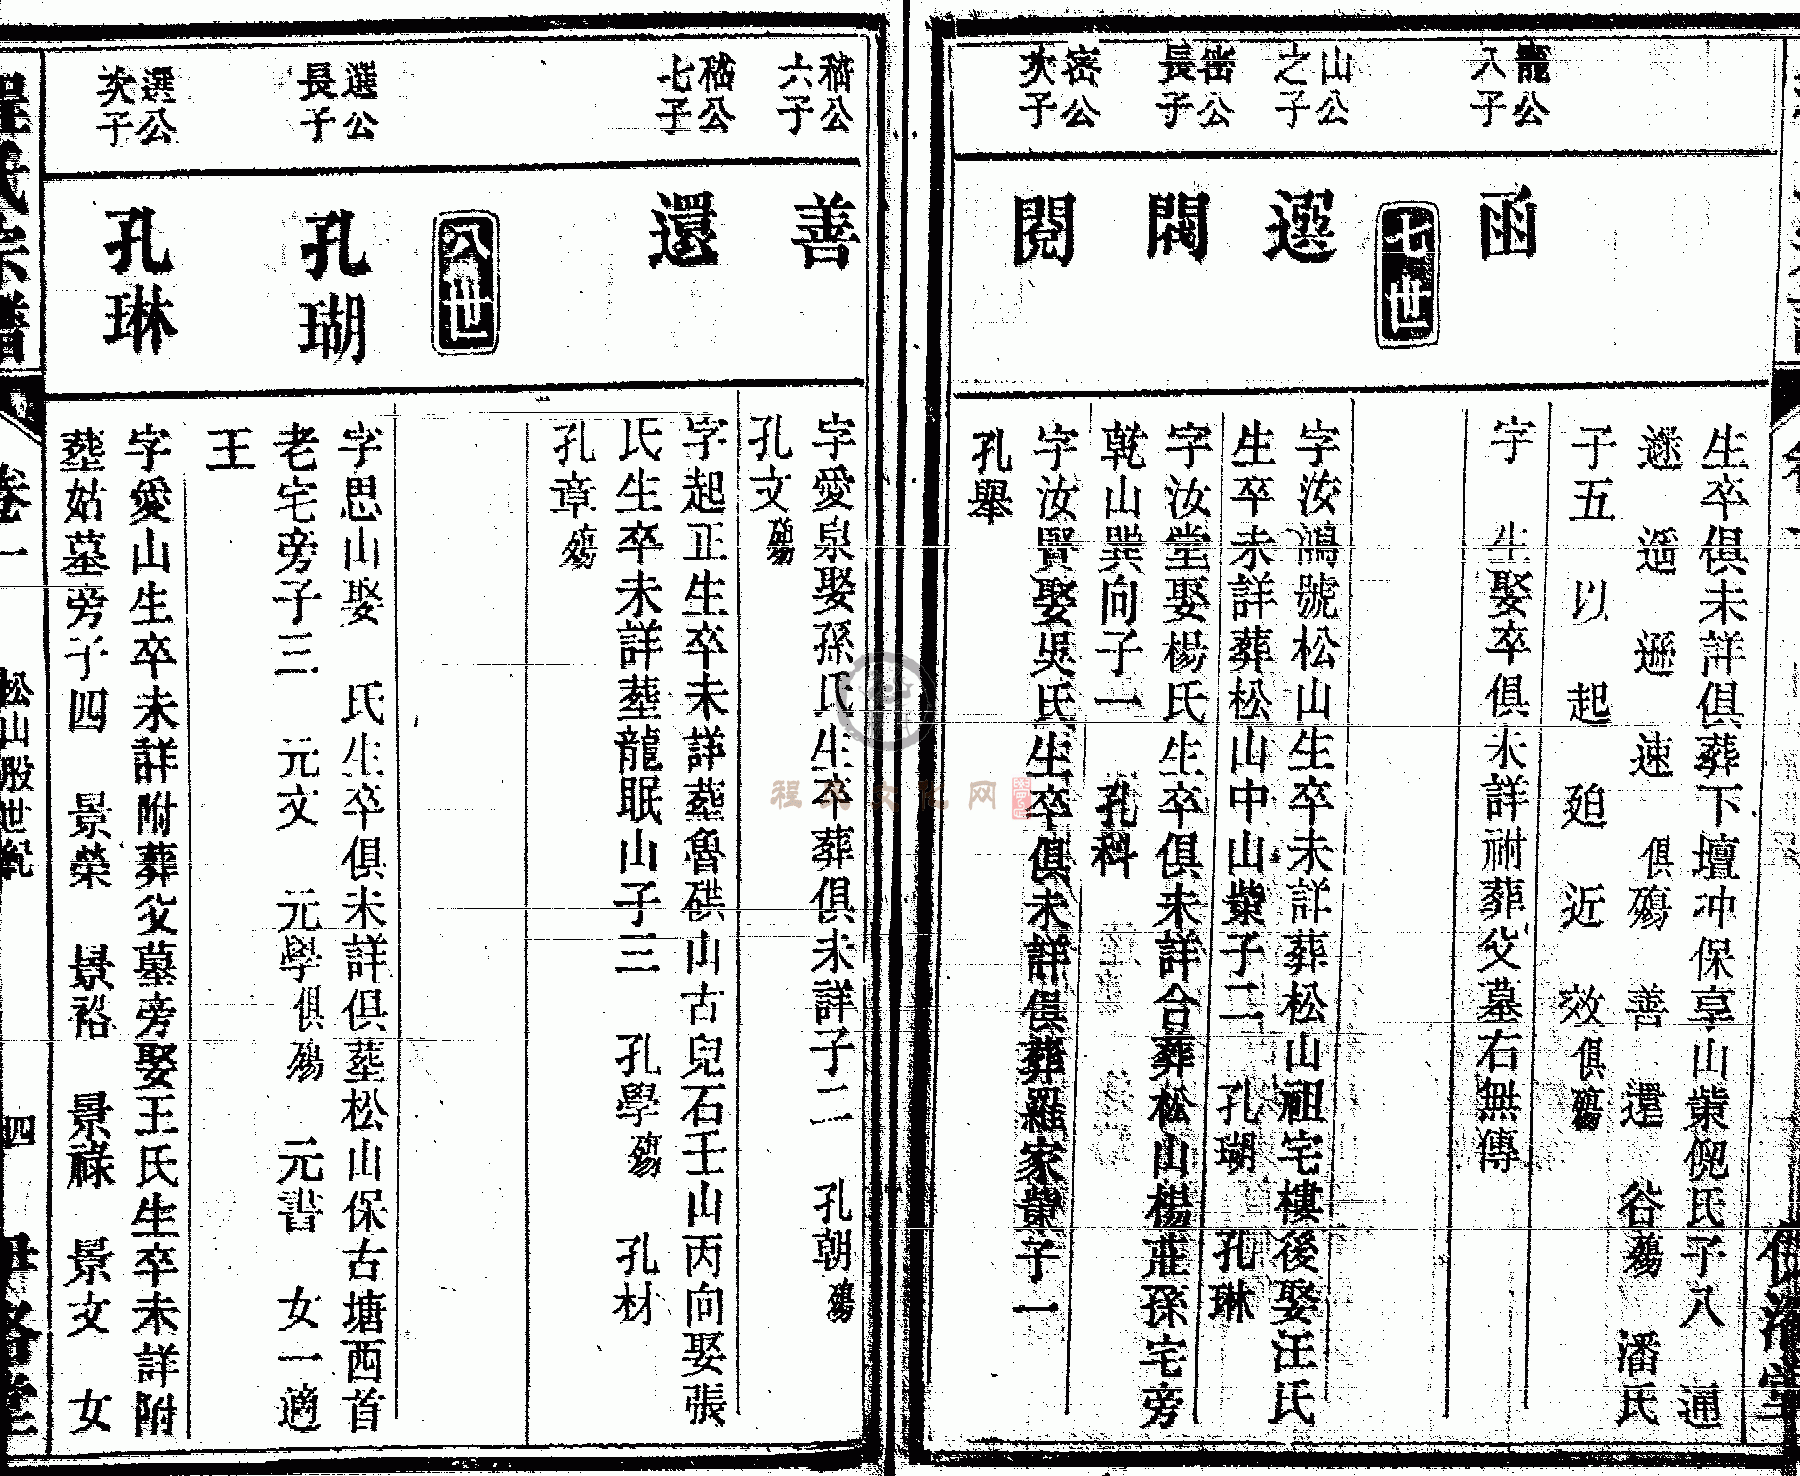 生卒俱未詳俱葬下壇冲保享山柴倪氏子八 通
遜 遁 遜 速 俱殤 善 還 谷殤 潘氏
子五 以 起 廹 近 效俱殤
龍公
入子
函
字 生娶卒俱未詳祔葬父墓右無傳
七世
山公
之子
選
字汝鴻號松山生卒未詳葬松山祖宅樓後娶汪氏
生卒未詳葬松山中山柴子二 孔瑚 孔琳
密公
長子
閎
字汝堂娶楊氏生卒俱未詳合葬松山楊莊孫宅旁
乾山巽向子一 孔科
密公
次子
閱
字汝賢娶吳氏生卒俱未詳俱葬羅家柴子一
孔舉
嵇公
六子
善
字愛泉娶孫氏生卒葬俱未詳子二 孔朝殤
孔文殤
嵇公
七子
還
字起正生卒未詳塟魯硔山古兒石壬山丙向娶張
氏生卒未詳塟龍眠山子三 孔學殤 孔材
孔章殤
八世
選公
長子
孔瑚
字思山娶 氏生卒俱未詳俱塟松山保古塘西首
老宅旁子三 元文 元學俱殤 元諎 女一適
王
選公
次子
孔琳
字愛山生卒未詳附葬父墓旁娶王氏生卒未詳附
塟姑墓旁子四 景榮 景裕 景祿 景文 女
程氏宗譜
卷一
松山殷世紀
四
伊洛堂
程氏文化网